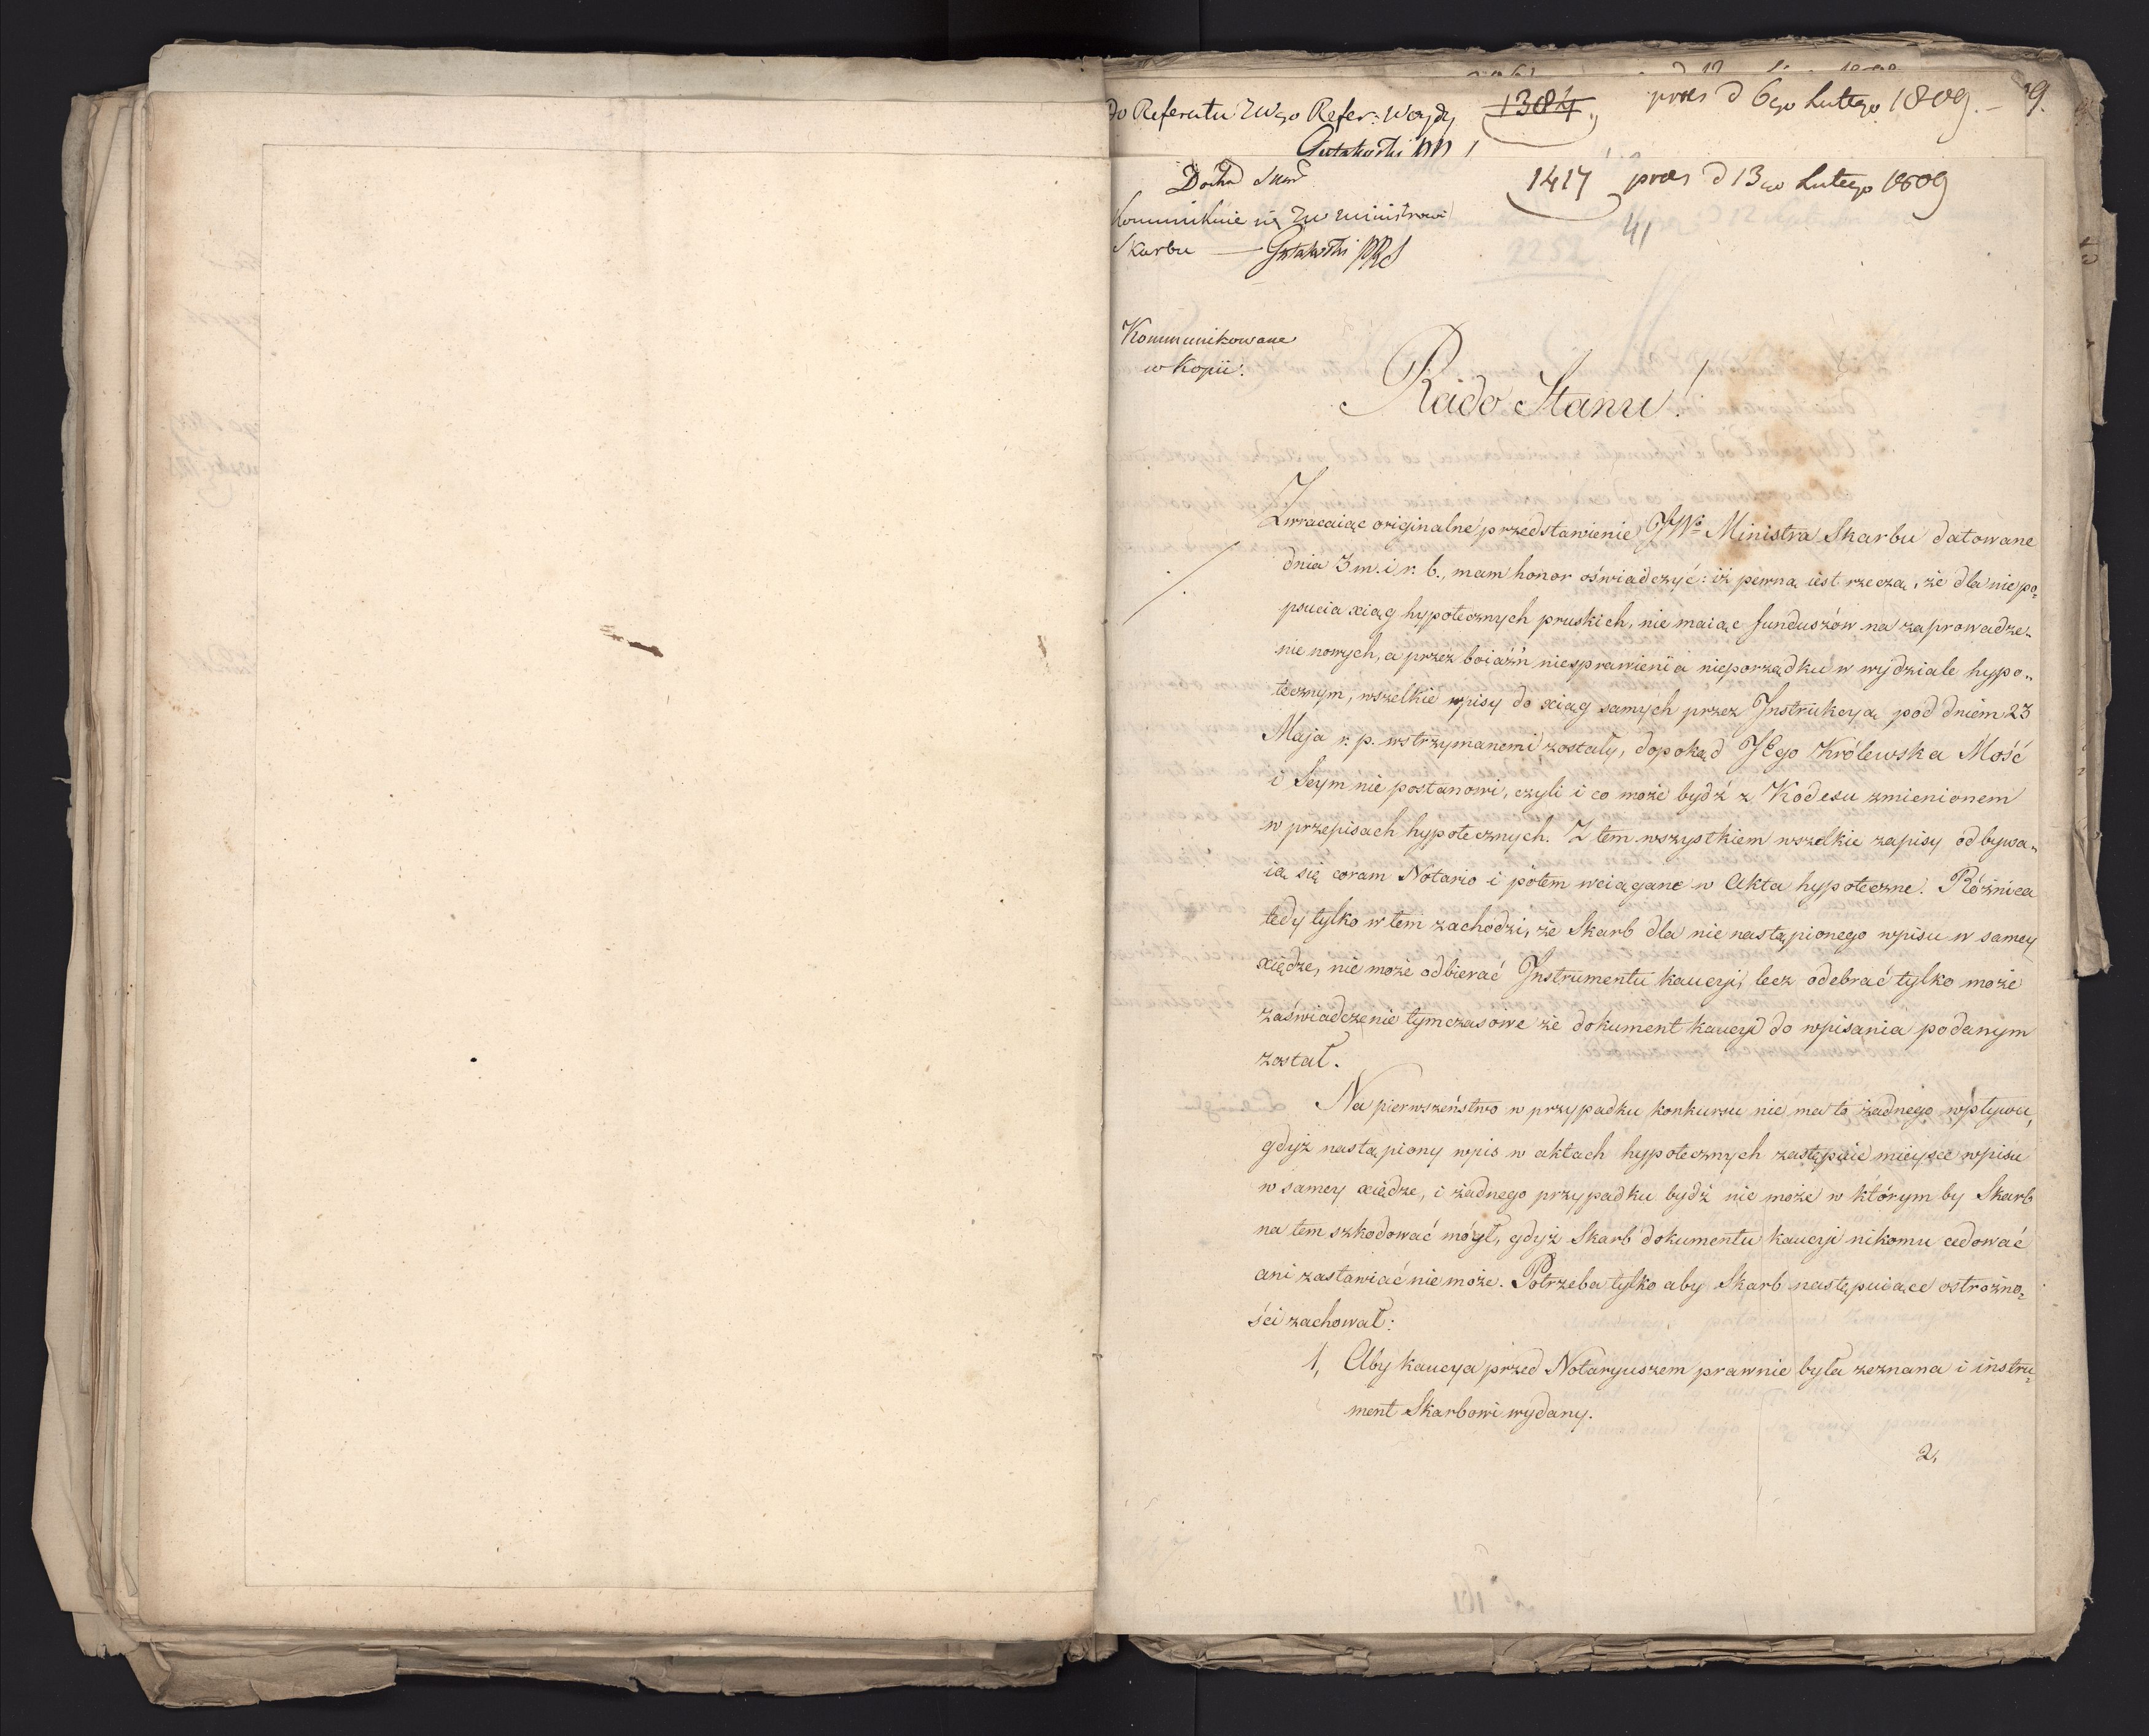 do Referatu JWgo Refer: Woydy 1384 præs d 6go Lutego 1809. 9.
Gutakowski
1417 præs d 13go Lutego 1809
kommunikuie się JW Ministrowi
Skarbu — Gutakowski PRS
41
2252
Kommunikowane
w Kopii.
Rado Stanu!
Zwracaiąc originalne przedstawienie JWo Ministra Skarbu datowane
dnia 3 m. i r. b., mam honor oświadczyć: iż pewną iest rzeczą, że dla niepo-
psucia xiąg hypotecznych pruskich, nie maiąc funduszów na zaprowadze-
nie nowych, a przez boiaźń niesprawienia nieporządku w wydziale hypo-
tecznym, wszelkie wpisy do xiąg samych przez Instrukcyą pod dniem 23
Maja r. p. wstrzymanemi zostały, dopokąd JEgo Królewska Mość
i Seym nie postanowi, czyli i co może bydź z Kodesu zmienionem
w przepisach hypotecznych. Z tem wszystkiem wszelkie zapisy odbywa-
ią się coram Notario i potem wciągane w Akta hypoteczne. Różnica
tedy tylko w tem zachodzi, że Skarb dla nie nastąpionego wpisu w samey
xiędze, nie może odbierać Instrumentu kaucyi, lecz odebrać tylko może
zaświadczenie tymczasowe że dokument kaucyi do wpisania podanym
został.
Na pierwszeństwo w przypadku konkursu nie ma to żadnego wpływu,
gdyż nastąpiony wpis w aktach hypotecznych zastępuie mieysce wpisu
w samey xiędze, i żadnego przypadku bydź nie może w którym by Skarb
na tem szkodować mógł, gdyż Skarb dokumentu kaucyi nikomu cedować
ani zastawiać nie może. Potrzeba tylko aby Skarb następuiące ostrożno-
ści zachował:
1, Aby kaucya przed Notaryuszem prawnie była zeznana i instru-
ment Skarbowi wydany.
2,